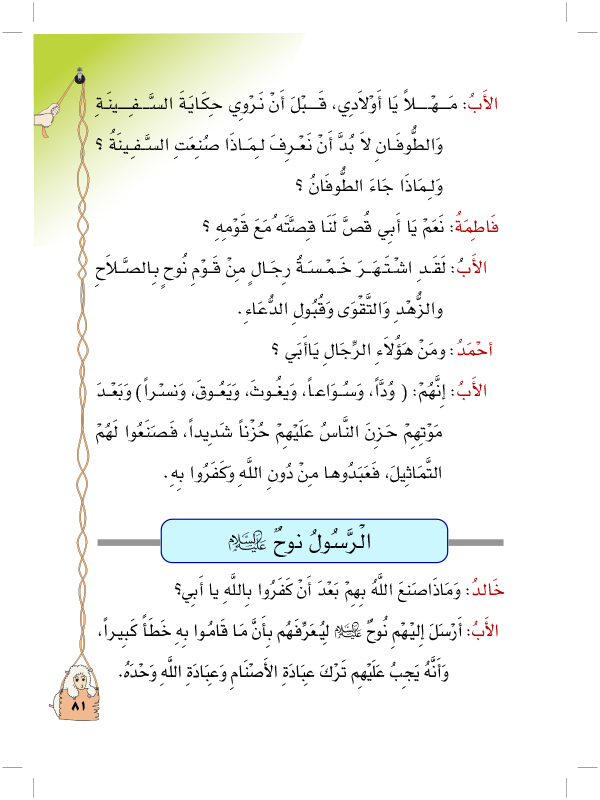 الأَبُ: مَـهْـلاً يَا أَوْلاَدِي، قَـبْلَ أَنْ نَرْوِي حِكَايَةَ السَّـفِـينَةِ
وَالطُّوفَـانِ لاَ بُدَّ أَنْ نَعْـرِفَ لِمَـاذَا صُنِعَتِ السَّـفِينَةُ ؟
وَلِمَاذَا جَاءَ الطُّوفَانُ ؟
فَاطِمَةُ: نَعَمْ يَا أَبِي قُصَّ لَنَا قِصَّتَهُ مَعَ قَوْمِهِ ؟
الأَبُ: لَقَـدِ اشْـتَهَـرَ خَـمْسَـةُ رِجَـالٍ مِنْ قَـوْمِ نُوحٍ بِالصَّـلاَحِ
والزُّهْدِ وَالتَّقْوَى وَقُبُولِ الدُّعَاءِ.
أحْمَدُ: ومَنْ هَؤُلاَءِ الرِّجَالِ يَاأَبَي ؟
الأَبُ: إِنَّهُمْ: ( وُدّاً، وَسُـوَاعـاً، وَيغُـوثَ، وَيَعُـوقَ، وَنسْـراً) وَبَعْـدَ
مَوْتِهِمْ حَزِنَ النَّاسُ عَلَيْهِمْ حُزْناً شَدِيداً، فَصَنَعُوا لَهُمْ
التَّمَاثِيلَ، فَعَبَدُوها مِنْ دُونِ اللَّهِ وَكَفَرُوا بِهِ.
الْرَّسُولُ نوحٌ عليه السلام
خَالدُ: وَمَاذَاصَنعَ اللَّهُ بِهِمْ بَعْدَ أَنْ كَفَرُوا بِاللَّهِ يا أَبِي؟
الأَبُ: أَرْسَلَ إِليْهِمْ نُوحٌ عليه السلام لِيُعَرِّفَهُم بِأَنَّ مَا قَامُوا بِهِ خَطَأً كَبِيراً،
وَأَنَّهُ يَجِبُ عَلَيْهِم تَرْكَ عِبَادَةِ الأَصْنَامِ وَعِبَادَةِ اللَّهِ وَحْدَهُ.
٨١